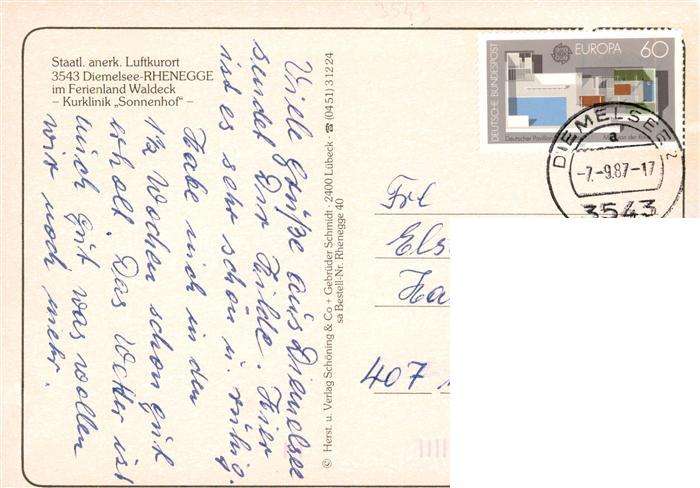 Staatl. anerk. Luftkurort
3543 Diemelsee-RHENEGGE
im Ferienland Waldeck
– Kurklinik „Sonnenhof" –
Viele Grüße aus Diemelsee
sendet Dir Hilde. Hier
ist es sehr schön u. ruhig.
Habe mich in den
1½ Wochen schon gut
erholt. Das Wetter ist
auch gut was wollen
wir noch mehr.
© Herst. u. Verlag Schöning & Co + Gebrüder Schmidt · 2400 Lübeck · ☎ (0451) 31224
sa Bestell-Nr. Rhenegge 40
3543
DEUTSCHE BUNDESPOST
EUROPA 60
Deutscher Pavillon
DIEMELSEE 2
a
-7.-9.87-17
3543
Frl
Els
407